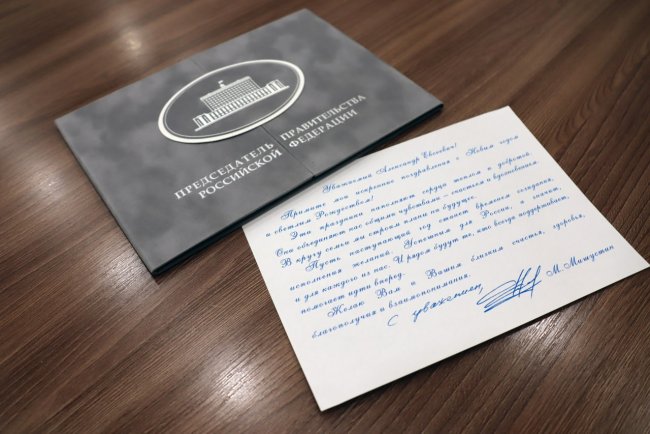 ПРЕДСЕДАТЕЛЬ ПРАВИТЕЛЬСТВА
РОССИЙСКОЙ ФЕДЕРАЦИИ
Уважаемый Александр Евгеньевич!
Примите мои искренние поздравления с Новым годом
и светлым Рождеством!
Эти праздники наполняют сердца теплом и добротой.
Они объединяют нас общими чувствами – счастьем и вдохновением.
В кругу семьи мы строим планы на будущее.
Пусть наступающий год станет временем созидания,
исполнения желаний. Успешным для России, а значит,
и для каждого из нас. И рядом будут те, кто всегда поддерживает,
помогает идти вперед.
Желаю Вам и Вашим близким счастья, здоровья,
благополучия и взаимопонимания.
С уважением,
М. Мишустин